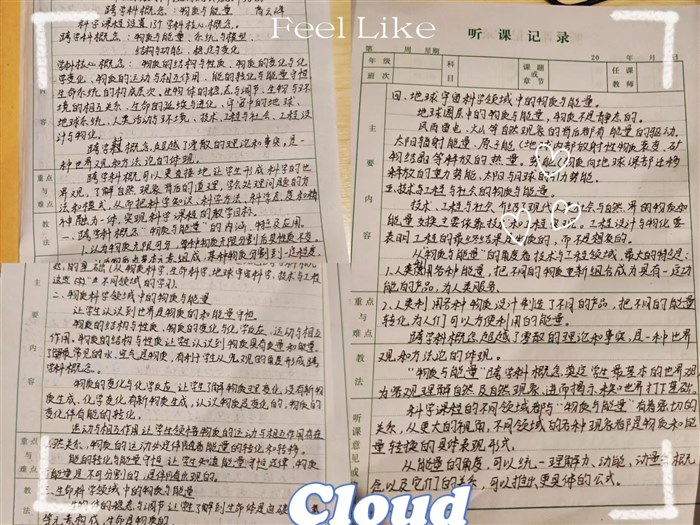 Feel Like
跨学科概念:物质与能量
科学课程设置13个学科核心概念。
跨学科概念:物质与能量、系统与模型
结构与功能、稳定与变化
学科核心概念:物质的结构与性质、物质的变化与化
学变化、物质的运动与相互作用、能的转化与能量守恒
生命系统的构成层次、生物体的稳态与调节、生物与环
境的相互关系、生命的延续与进化、宇宙中的地球、
地球系统、人类活动与环境、技术、工程与社会、工程设
计与物化。
跨学科概念,超越了零散的理论和事实,是一
种世界观和方法论的体现。
跨学科概念可以更直接地让学生形成科学的世
界观,了解自然现象背后的道理,学会处理问题的方
法和模式,从而把科学知识、科学方法、科学态度和精
神融为一体,实现科学课程的教学目标。
一、跨学科概念“物质与能量”的内涵、特点及应用。
1、认为物质无限可分,每种物质无限分割后其性质不变
重点
与
难点
教
法
主
要
内
容
二、物质科学领域中的物质与能量
让学生认识到世界是物质的和能量守恒。
物质的结构与性质、物质的变化与化学反应、运动与相互
作用。物质的结构与性质让学生认识到物质具有质量和能量。
了解常见的水、空气是物质,有利于学生从宏观的角度形成跨学
科概念。
物质的变化与化学反应,让学生了解物质物理变化,没有新物
质生成,化学变化有新物质生成,认识物质是变化的,物质的变
化伴有能的转化。
运动与相互作用让学生领悟物质的运动与相互作用存在
必然关系,物质的运动必定伴随着能量的转化和转移。
能的转化与能量守恒,让学生知道能量守恒定律,物质
能量是不可分割的,是伴随出现的。
三、生命科学领域中的物质与能量
听课记录
第 周 星期 20 年 月 日
年级
班次
科
目
课题
或章节
任课
教师
四、地球宇宙科学领域中的物质与能量。
地球圈层中的物质与能量,物质不是静态的。
风雨雷电、火山等自然现象的背后都有能量的驱动。
太阳辐射能量,原子能(地球内部放射性物质衰变、矿
物结晶等释放的热量。势能:物质向地球深部迁移
释放的重力势能,太阳与月球的引力势能。
五、技术与工程与社会的物质与能量。
技术、工程与社会介绍了现代社会与自然界的物质和
能量交换主要依靠技术和工程设计。工程设计与物化要
表明工程的最终结果是物质的,而不是想象的。
从“物质与能量”的角度看技术与工程领域,最大的特征是:
1、人类利用各种能量,把不同的物质重新组合成为具有一定功
能的产品,为人类服务。
2、人类利用各种物质设计制造了不同的产品,把不同的能量
转化为人们可以方便利用的能量。
跨学科概念超越了零散的理论和事实,是一种世界
观和方法论的体现。
“物质与能量”跨学科概念奠定学生最基本的世界观
为客观理解自然及自然现象,进而揭示未知世界打下基础。
科学课程的不同领域都与“物质与能量”有着密切的
关系,从更大的视角,不同领域的各种现象都是物质和能
量转换的具体表现形式。
从能量的角度,可以统一理解力、动能、动量等概
念以及它们的关系,可以推出更具体的公式。
听课意见或
Cloud